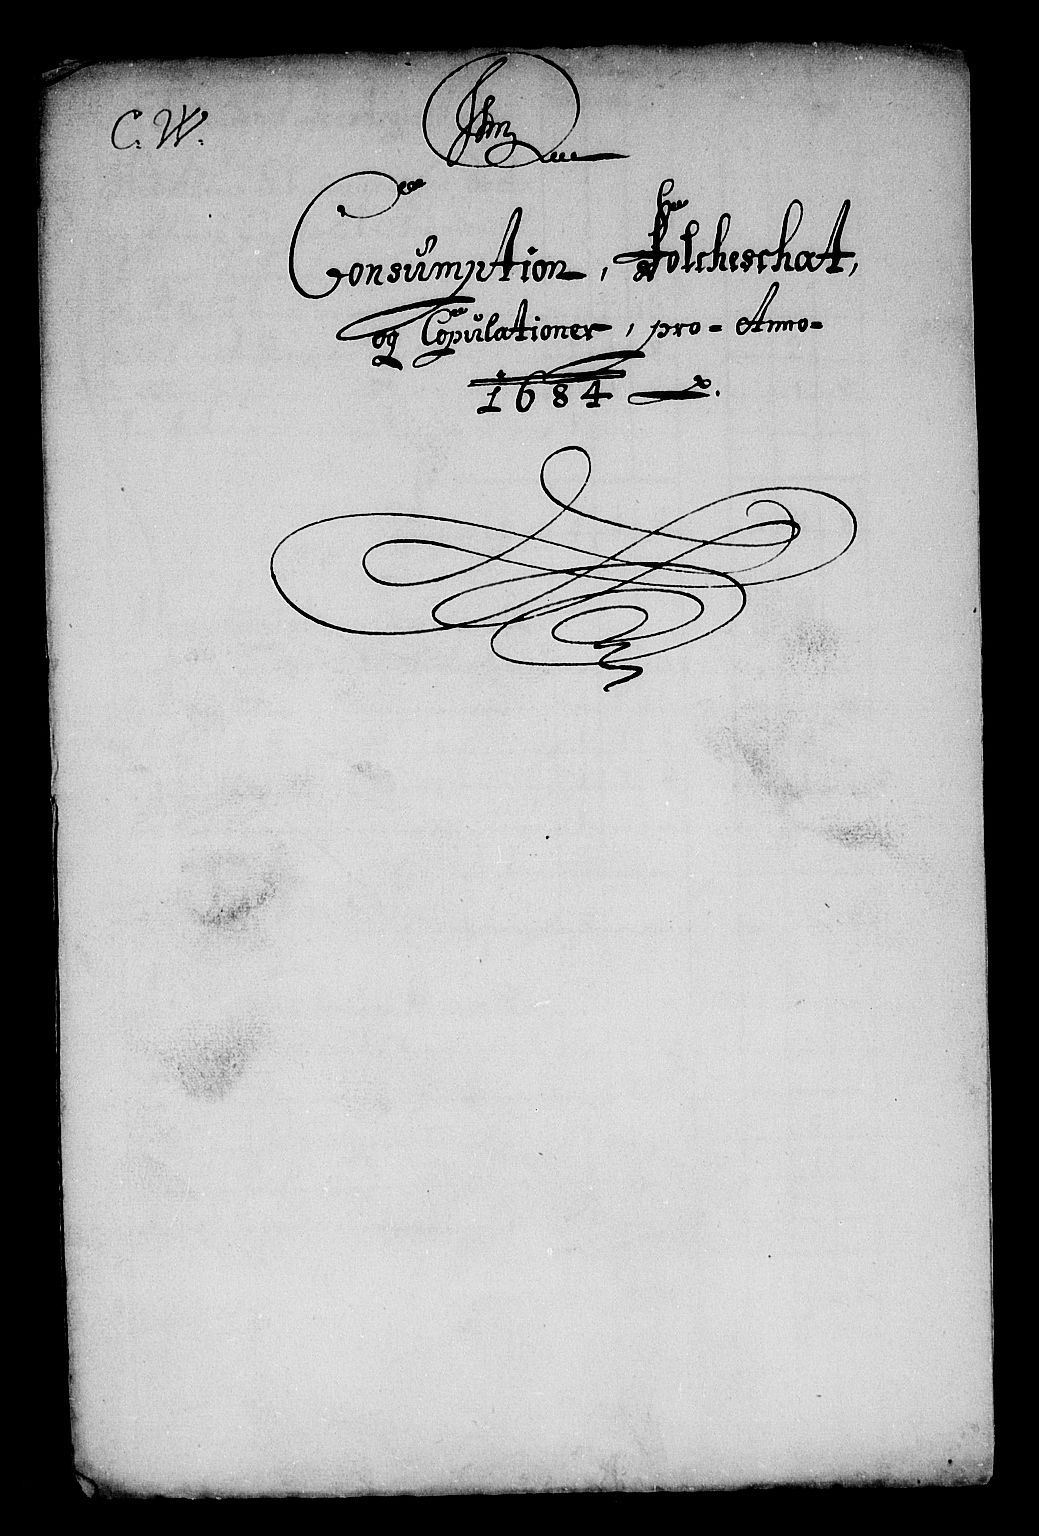 C. W.
Consumption, Folcheschat,
og Copulationer, pro = Anno =
1684